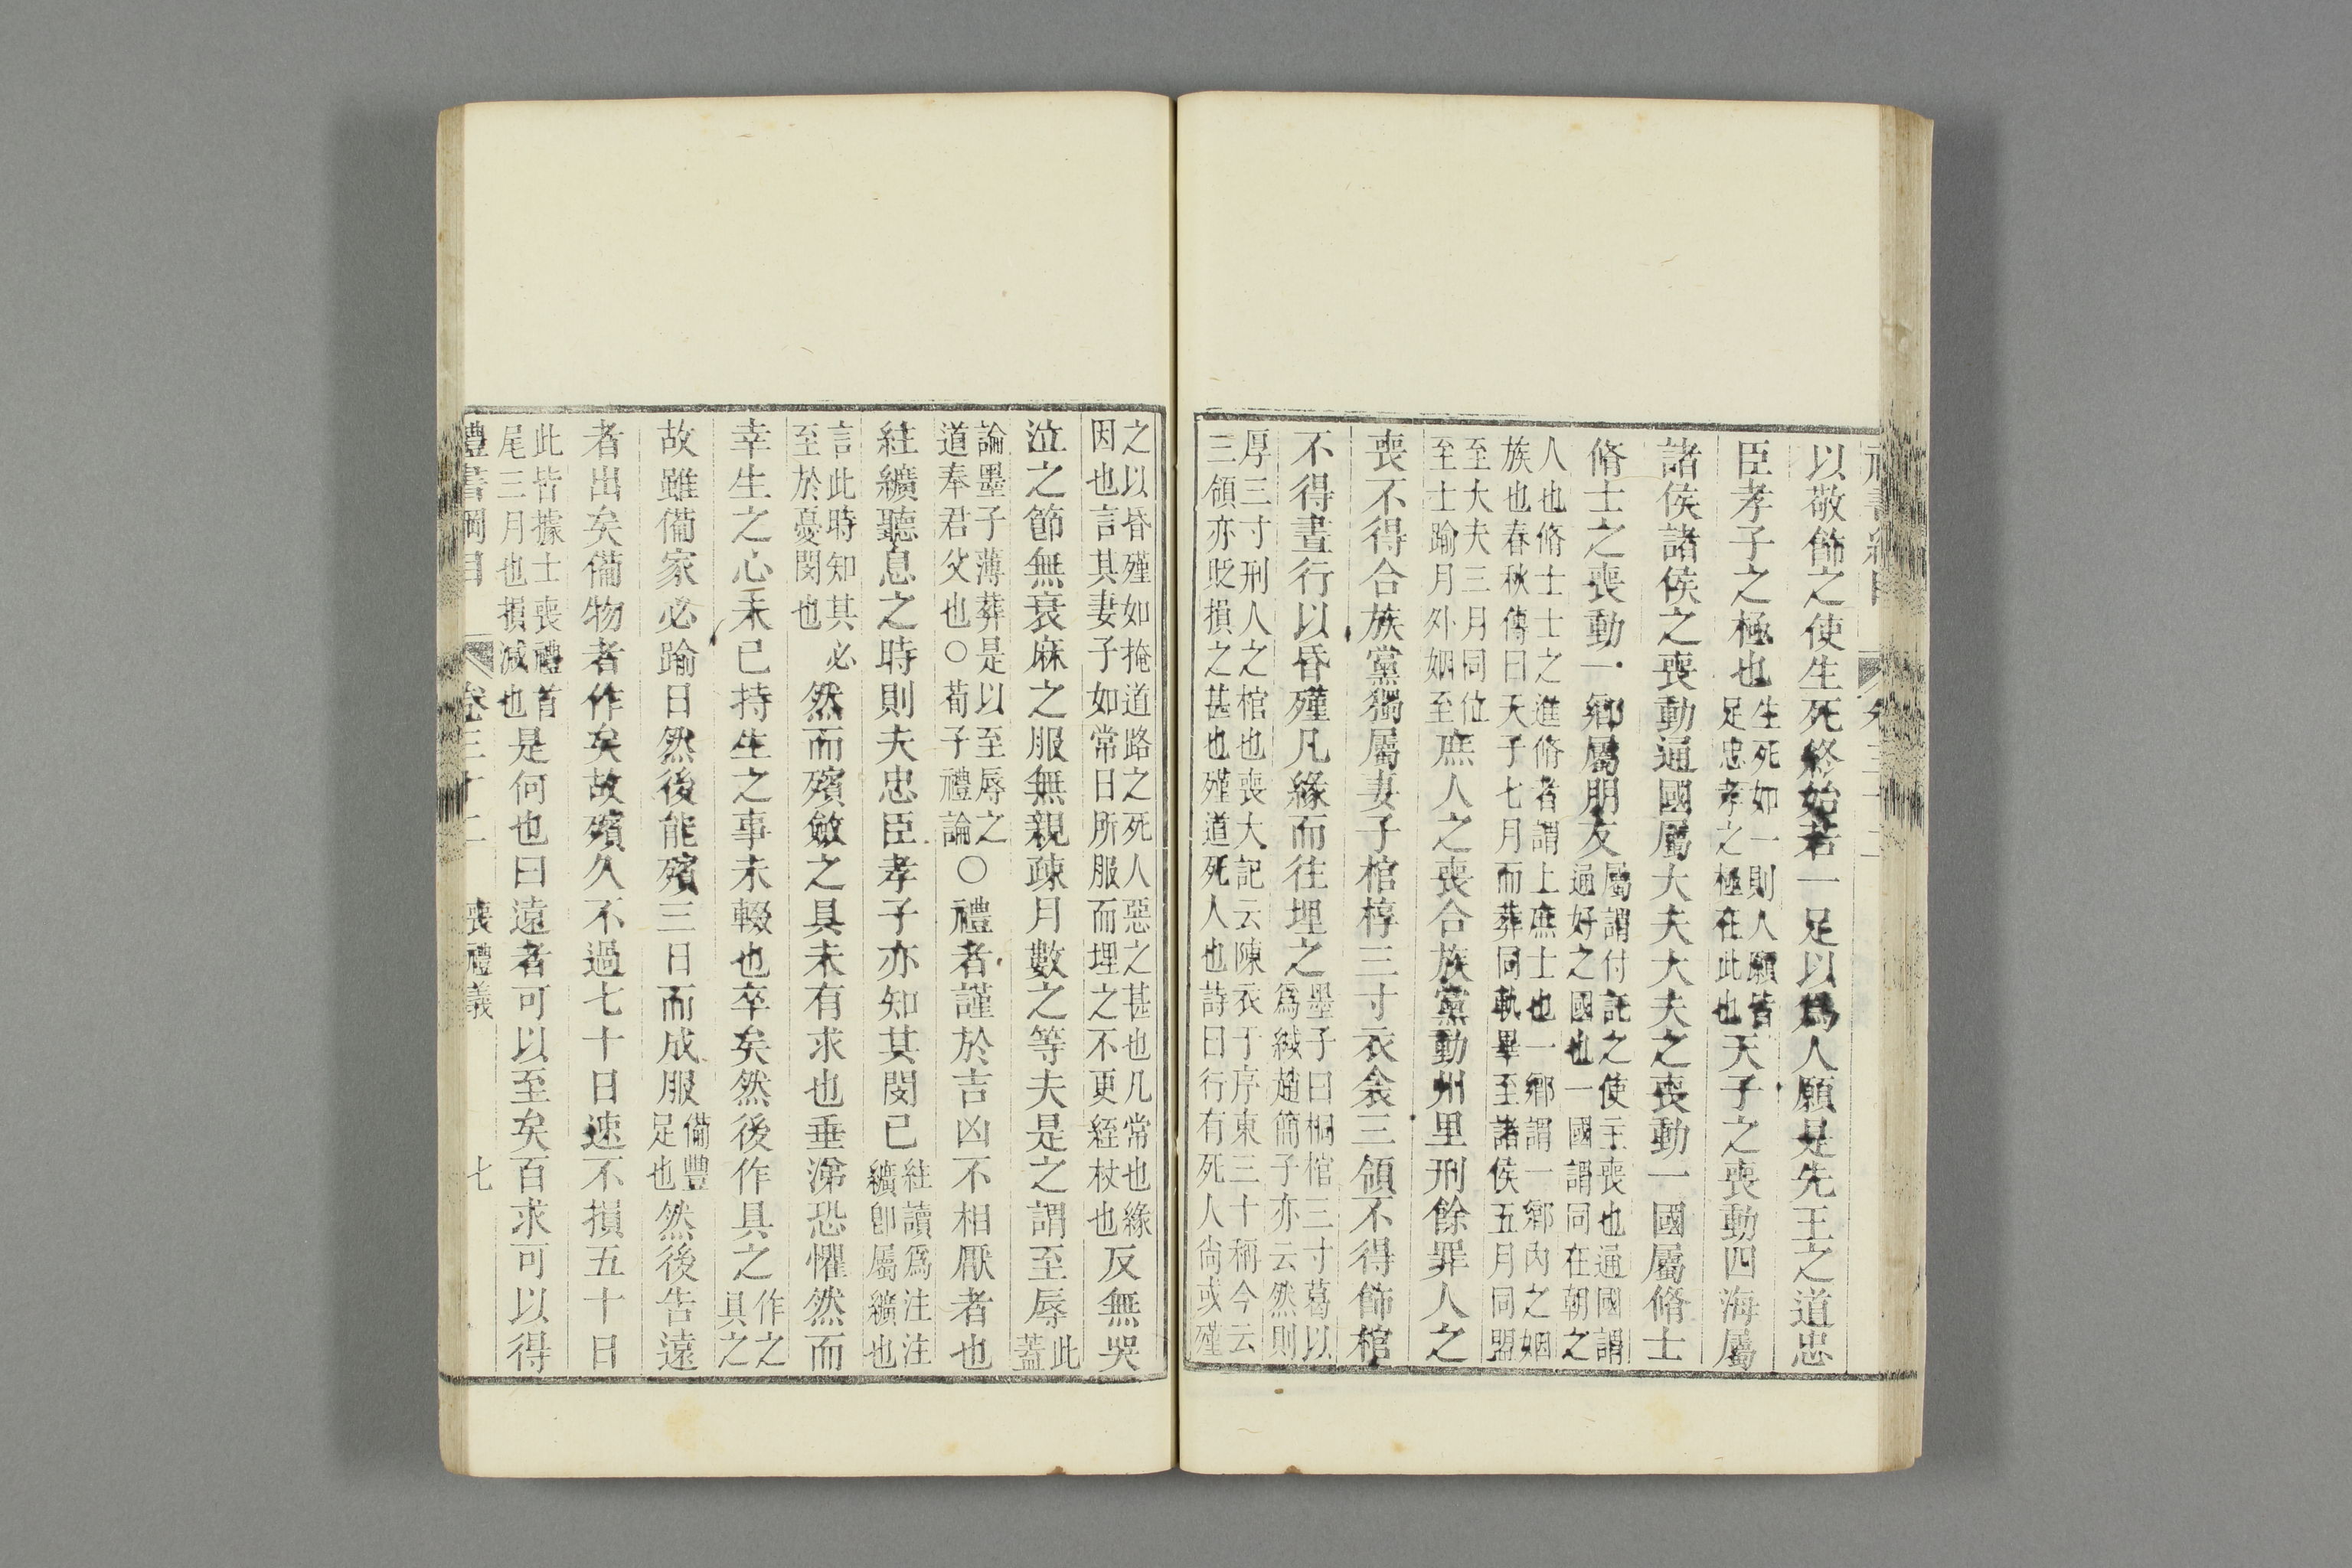 以敬飾之使生死終始若一足以爲人願是先王之道忠
臣孝子之極也生死如一則人願皆足忠孝之極在此也天子之喪動四海屬
諸侯諸侯之喪動通國屬大夫大夫之喪動一國屬脩士
脩士之喪動一鄉屬朋友屬謂付託之使主喪也通國謂通好之國也一國謂同在朝之
人也脩士士之進脩者謂上庶士也一鄉謂一鄉内之姻族也春秋傳曰天子七月而葬同軌畢至諸侯五月同盟
至大夫三月同位至士踰月外姻至庶人之喪合族黨動州里刑餘罪人之
喪不得合族黨獨屬妻子棺椁三寸衣衾三領不得飾棺
不得晝行以昏殣凡緣而往埋之墨子曰桐棺三寸葛以爲緘趙簡子亦云然則
厚三寸刑人之棺也喪大記云陳衣于序東三十稱今云三領亦貶損之甚也殣道死人也詩曰行有死人尚或殣
之以昏殣如掩道路之死人惡之甚也凡常也緣因也言其妻子如常日所服而埋之不更絰杖也反無哭
泣之節無衰麻之服無親疎月數之等夫是之謂至辱此蓋
論墨子薄葬是以至辱之道奉君父也○荀子禮論○禮者謹於吉凶不相厭者也
紸纊聽息之時則夫忠臣孝子亦知其閔已紸讀爲注注纊卽屬纊也
言此時知其必至於憂閔也然而殯斂之具未有求也垂涕恐懼然而
幸生之心未已持生之事未輟也卒矣然後作具之作之具之
故雖僃家必踰日然後能殯三日而成服僃豐足也然後告遠
者出矣僃物者作矣故殯久不過七十日速不損五十日
此皆據士喪禮首尾三月也損減也是何也曰遠者可以至矣百求可以得
禮書綱目 卷三十二 喪禮義 七